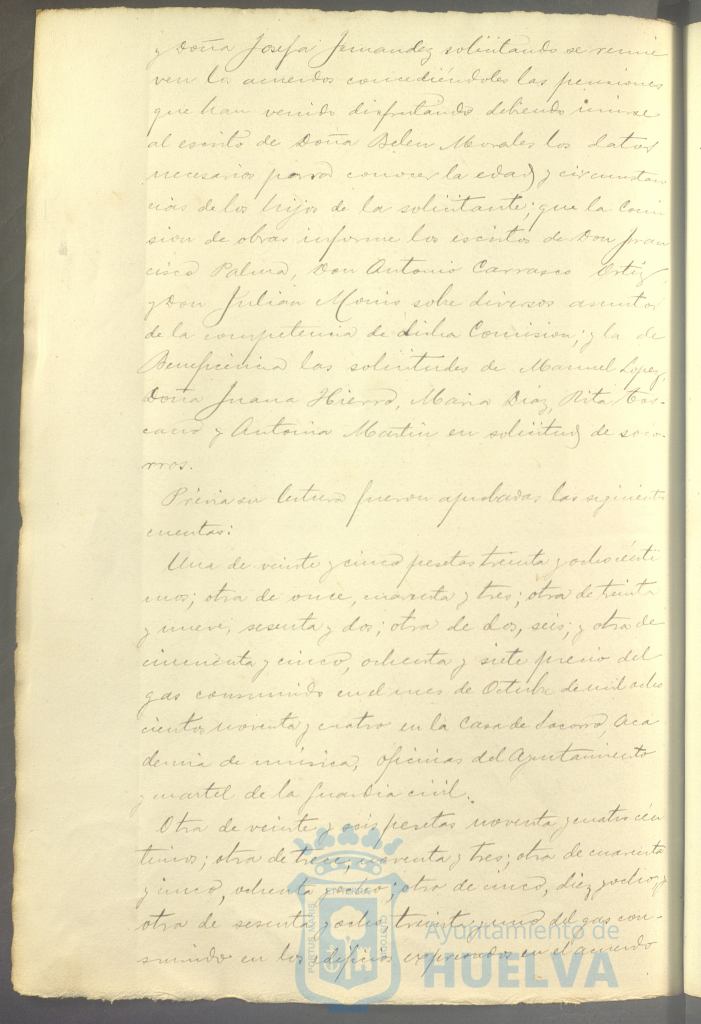 y Doña Josefa Jernandez solicitando se renue
ven los acuerdos concediéndoles las pensiones
que han venido disfrutando debiendo unirse
al escrito de Doña Belen Morales los datos
necesarios para conocer la edad y circunstan
cias de los hijos de la solicitante; que la Comi
sion de obras informe los escritos de Don Fran
cisco Palma, Don Antonio Carrasco Ortiz
y Don Julian sobre diversos asuntos
de la competencia de dicha Comision; y la de
Beneficencia las solicitudes de Manuel Lopez,
Doña Juana Hierro, Maria Diaz, Rita Tos-
cano y Antonia Martin en solicitud de soco-
rros.
Prévia su lectura fueron aprobadas las siguientes
cuentas:
Una de veinte y cinco pesetas treinta y ocho cénti
mos; otra de once, cuarenta y tres; otra de treinta
y nueve, sesenta y dos; otra de dos, seis; y otra de
cincuenta y cinco, ochenta y siete precio del
gas consumido en el mes de Octubre de mil ocho
cientos noventa y cuatro en la Casa de Socorro, Aca
demia de música, oficinas del Ayuntamiento
y cuartel de la Guardia civil.
Otra de veinte y seis pesetas noventa y cuatro cén
timos; otra de trece, noventa y tres; otra de cuarenta
y cinco, ochenta y ocho; otra de cinco, diez y ocho, y
otra de sesenta y ocho treinta y una del gas con-
sumido en los edificios expresados en el acuerdo
PORTUS MARIS
CUSTODIA
Ayuntamiento de
HUELVA